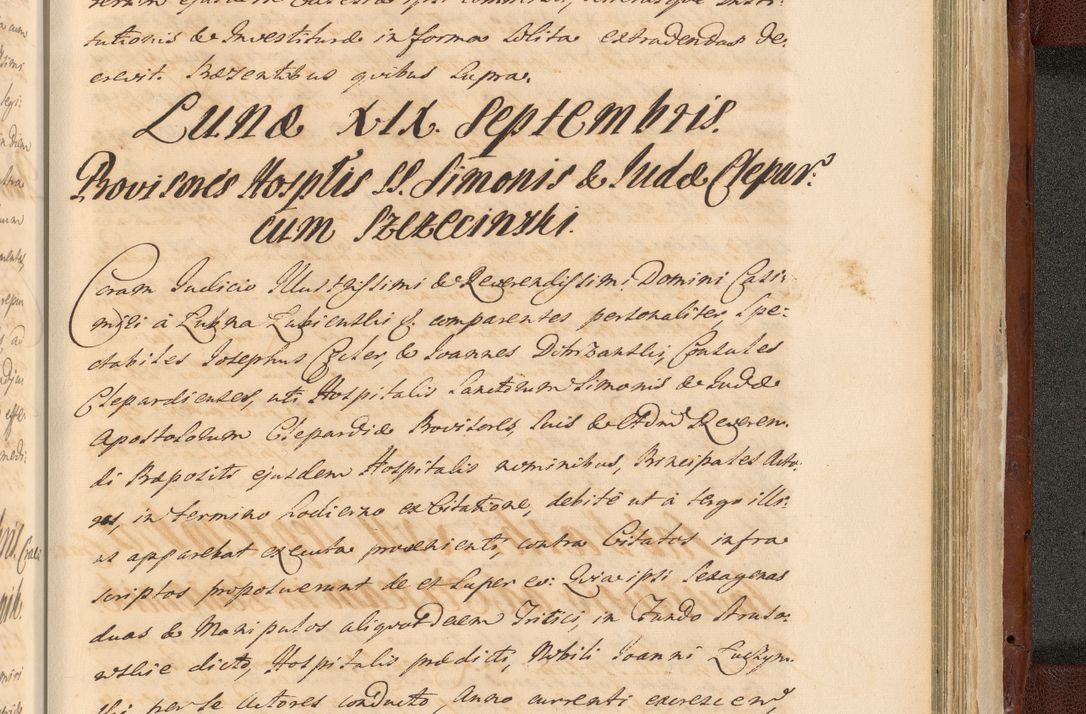 tutionis & Investituræ in forma solita extradendas de:
crevit. Præsentibus quibus supra.
Lunæ XIX. Septembris.
Provisores Hosptlis SS. Simonis & Judæ Clepar:
cum Szczecinski.
Coram Judicio Illustrissimi & Reverendissimi Domini Casi:
miri à Lubna Lubienski &. comparentes personaliter, Spe:
ctabiles Josephus Czeler, & Joannes Dobrzanski, Consules
Clepardienses, uti Hospitalis Sanctorum Simonis & Judæ
Apostolorum Clepardiæ Provisores, suis & Adm Reveren:
di Præpositi ejusdem Hospitalis nominibus, Principales Acto:
res, in termino hodierno ex Citatione, debitè ut à tergo illi:
us apparebat executa proveniente, contra Citatos infra
scriptos proposuerunt de et super eo: Quia ipsi sexagenas
duas & Manipulos aliquot Decem Tritici, in Fundo
dicto, Hospitalis prædicti, Nobili Joanni
per se Actores conducto, Anno currenti